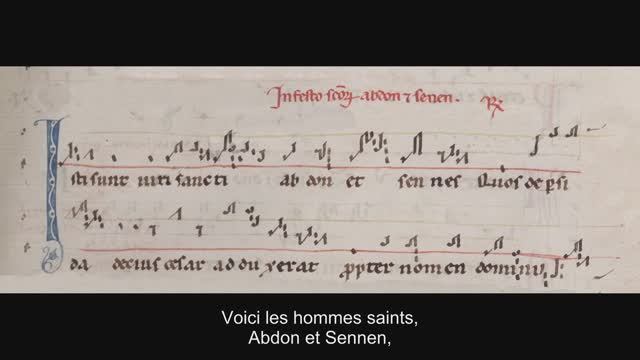 In festo scōꝝ abdon ⁊ senen. ℞
Isti sunt viri sancti abdon et sennes Quos de psi
da decius cesar ad du xerat ꝓpter nomen domini
Voici les hommes saints,
Abdon et Sennen,